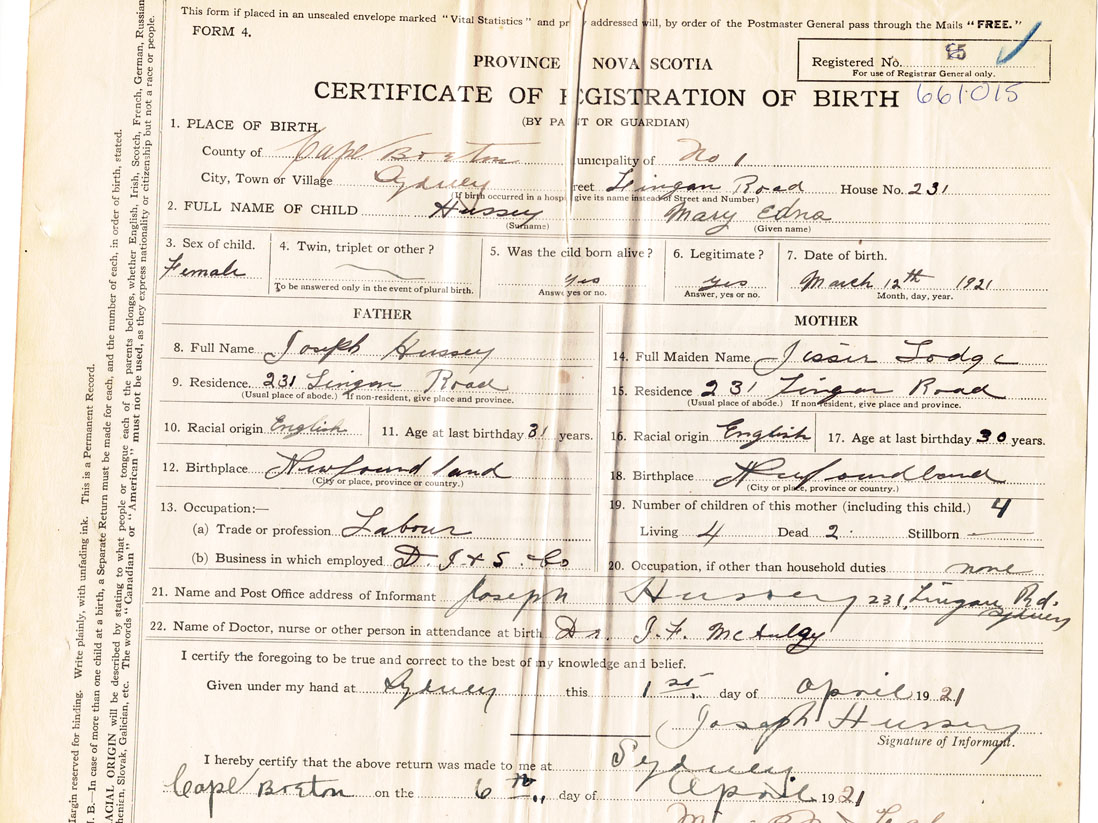 This form if placed in an unscaled envelope marked "Vital Statistics" and pr y addressed will, by order of the Postmaster General pass through the Mails "FREE."
FORM 4.
PROVINCE NOVA SCOTIA
Registered No.
For use of Registrar General only.
CERTIFICATE OF EGISTRATION OF BIRTH 661015
(BY PA NT OR GUARDIAN)
1. PLACE OF BIRTH.
County of Cape Breton unicipality of No 1
City, Town or Village Sydney reet Lingan Road House No. 231
(If birth occurred in a hosp give its name instead of Street and Number)
2. FULL NAME OF CHILD Hussey Mary Edna
(Surname) (Given name)
3. Sex of child. 4. Twin, triplet or other? 5. Was the cild born alive? 6. Legitimate? 7. Date of birth.
Female yes yes March 12th 1921
To be answered only in the event of plural birth. Answ yes or no. Answer, yes or no. Month, day, year.
FATHER MOTHER
8. Full Name Joseph Hussey 14. Full Maiden Name Jessie Lodge
9. Residence. 231 Lingan Road 15. Residence 231 Lingan Road
(Usual place of abode.) If non-resident, give place and province. (Usual place of abode.) If non-resident, give place and province.
10. Racial origin English 11. Age at last birthday 31 years. 16. Racial origin English 17. Age at last birthday 30 years.
12. Birthplace Newfoundland 18. Birthplace Newfoundland
(City or place, province or country.) (City or place, province or country.)
13. Occupation:— 19. Number of children of this mother (including this child.) 4
(a) Trade or profession Labour Living 4 Dead 2 Stillborn
(b) Business in which employed D. I. & S. Co 20. Occupation, if other than household duties none
21. Name and Post Office address of Informant Joseph Hussey 231, Lingan Rd. Sydney
22. Name of Doctor, nurse or other person in attendance at birth Dr. J. F.
I certify the foregoing to be true and correct to the best of my knowledge and belief.
Given under my hand at Sydney this 1st day of April 1921
Joseph Hussey
Signature of Informant.
I hereby certify that the above return was made to me at Sydney
Cape Breton on the 6th day of April 1921
Margin reserved for binding. Write plainly, with unfading ink. This is a Permanent Record.
N. B.—In case of more than one child at a birth, a Separate Return must be made for each, and the number of each, in order of birth, stated.
ACIAL ORIGIN will be described by stating to what people or tongue each of the parents belongs, whether English, Irish, Scotch, French, German, Russian
henian, Slovak, Galician, etc. The words "Canadian" or "American" must not be used, as they express nationality or citizenship but not a race or people.